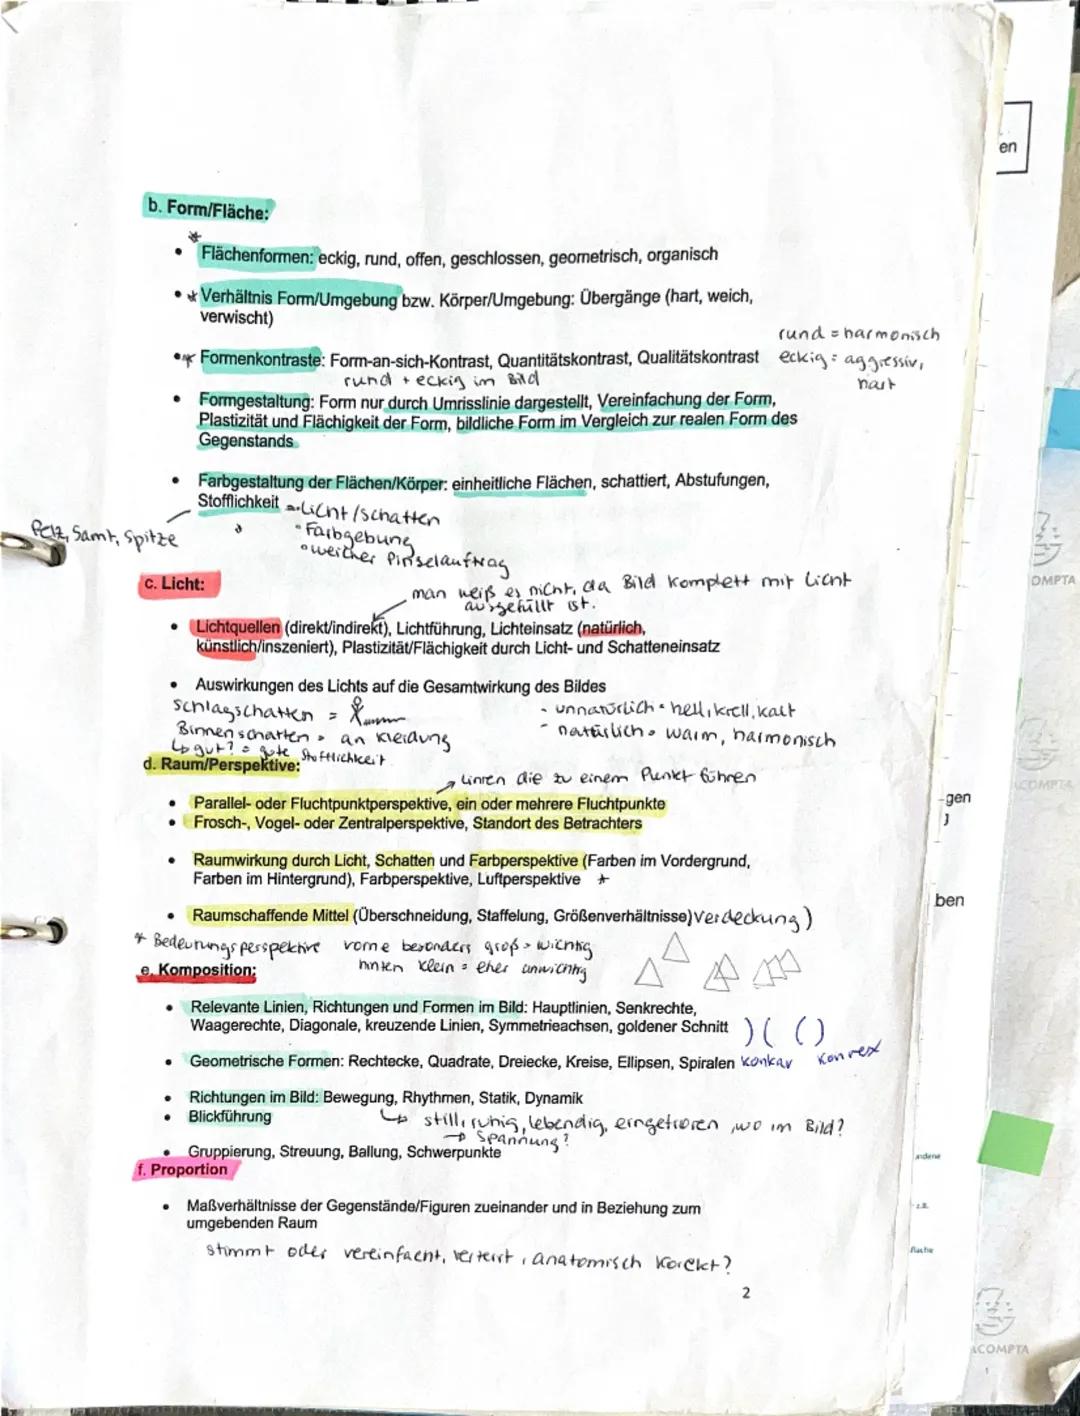 en
b. Form/Fläche:
*
• Flächenformen: eckig, rund, offen, geschlossen, geometrisch, organisch
• * Verhältnis Form/Umgebung bzw. Körper/Umgebung: Übergänge (hart, weich,
verwischt)
rund = harmonisch
• * Formenkontraste: Form-an-sich-Kontrast, Quantitätskontrast, Qualitätskontrast
eckig = aggressiv,
hart
rund + eckig im Bild
• Formgestaltung: Form nur durch Umrisslinie dargestellt, Vereinfachung der Form,
Plastizität und Flächigkeit der Form, bildliche Form im Vergleich zur realen Form des
Gegenstands
• Farbgestaltung der Flächen/Körper: einheitliche Flächen, schattiert, Abstufungen,
Stofflichkeit
• Licht/Schatten
• Farbgebung
• weicher Pinselauftrag
Pelz, Samt, Spitze
c. Licht:
man weiß es nicht, da Bild komplett mit Licht
ausgefüllt ist.
• Lichtquellen (direkt/indirekt), Lichtführung, Lichteinsatz (natürlich,
künstlich/inszeniert), Plastizität/Flächigkeit durch Licht- und Schatteneinsatz
• Auswirkungen des Lichts auf die Gesamtwirkung des Bildes
Schlagschatten =
- unnatürlich = hell, krell, kalt
Binnenschatten = an Kleidung
- natürlich = warm, harmonisch
↳ gut? = gute Stofflichkeit
d. Raum/Perspektive:
→ Linien die zu einem Punkt führen
• Parallel- oder Fluchtpunktperspektive, ein oder mehrere Fluchtpunkte
• Frosch-, Vogel- oder Zentralperspektive, Standort des Betrachters
• Raumwirkung durch Licht, Schatten und Farbperspektive (Farben im Vordergrund,
Farben im Hintergrund), Farbperspektive, Luftperspektive *
• Raumschaffende Mittel (Überschneidung, Staffelung, Größenverhältnisse) Verdeckung)
* Bedeutungsperspektive vorne besonders groß = wichtig
hinten klein = eher unwichtig
e. Komposition:
• Relevante Linien, Richtungen und Formen im Bild: Hauptlinien, Senkrechte,
Waagerechte, Diagonale, kreuzende Linien, Symmetrieachsen, goldener Schnitt )( ()
• Geometrische Formen: Rechtecke, Quadrate, Dreiecke, Kreise, Ellipsen, Spiralen konkav konvex
• Richtungen im Bild: Bewegung, Rhythmen, Statik, Dynamik
• Blickführung
↳ still, ruhig, lebendig, eingefroren, wo im Bild?
→ Spannung?
• Gruppierung, Streuung, Ballung, Schwerpunkte
f. Proportion
• Maßverhältnisse der Gegenstände/Figuren zueinander und in Beziehung zum
umgebenden Raum
stimmt oder vereinfacht, verzerrt, anatomisch korekt?
2
-gen
ben
andene
z.B.
fläche
OMPTA
ACOMPTA
ACOMPTA